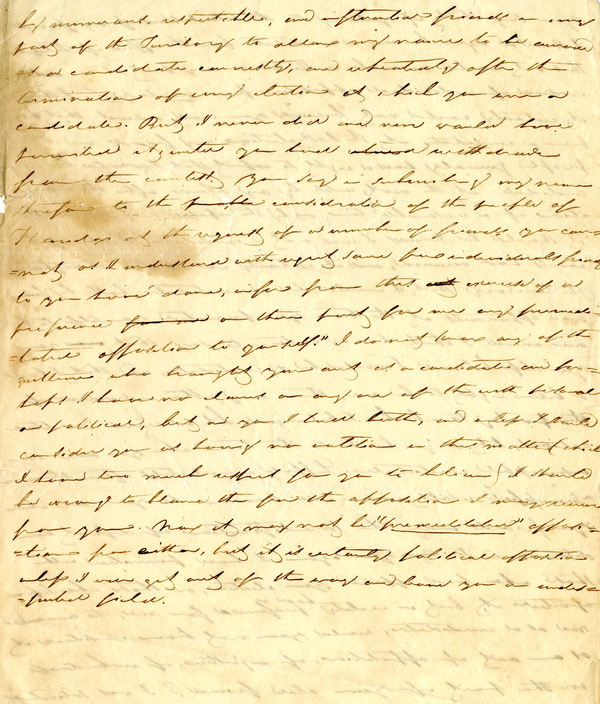 by numerous, respectable, and influential friends in every
part of the Territory to allow my name to be announced
as a candidate earnestly, and repeatedly after the
termination of every election at which you were a
candidate. But I never did and never would have
permitted it, until you had withdrawn
from the contest. You say in submitting my name
therefore to the consideration of the people of
at the request of a number of friends you can
=not, as I understand with regret some few individuals friendly
to you have done, infer from this exercise of a
preference on their part for me any premedi
=tated opposition to yourself." I do not know any of the
gentlemen who brought you out as a candidate and per
haps I have no claims on any one of them either personal
or political, but on you I had both, and unless I could
consider you as having no volition in this matter (which
I have too much respect for you to believe) I should
be wrong to blame them for the opposition I may receive
from you. Now it may not be "premeditated" opposi=
=tion from either, but it is certainly political opposition
unless I will get out of the way and leave you an undis=
=puted field.